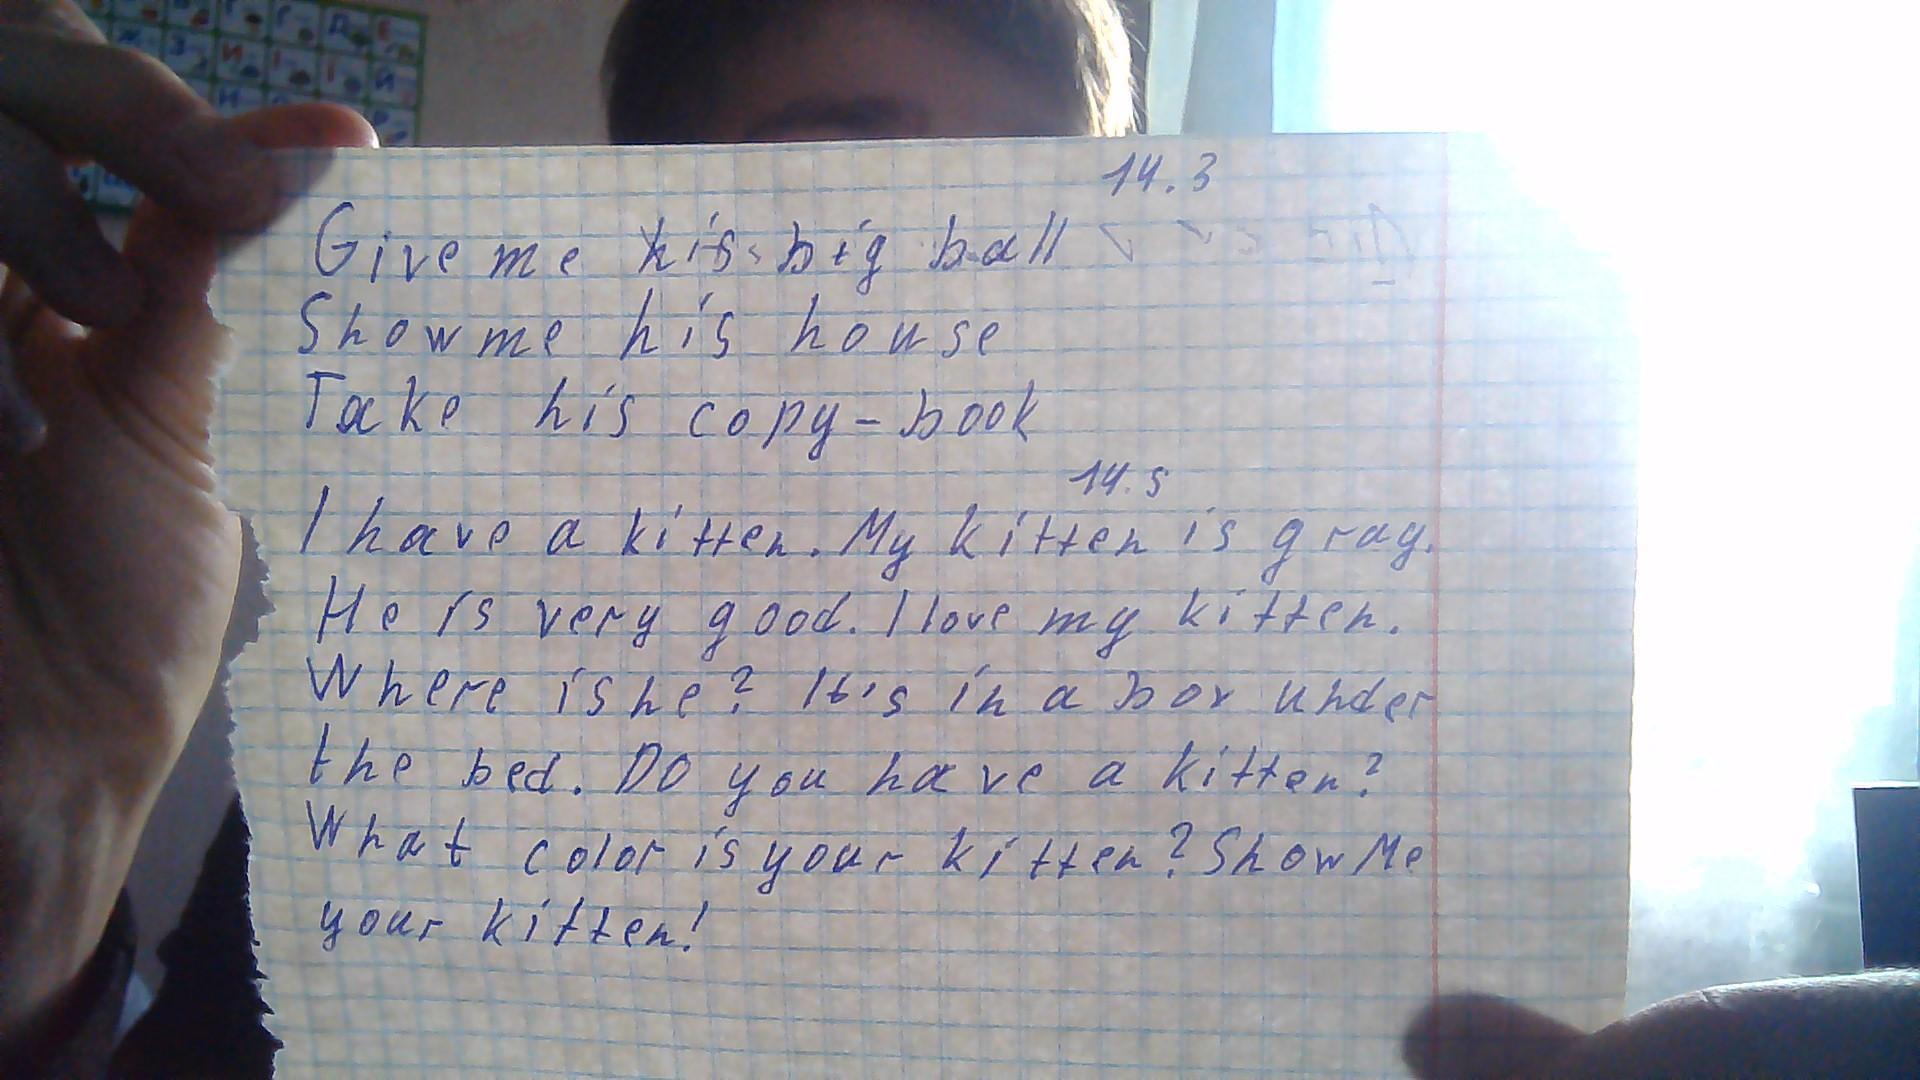 14.3
Give me his big ball
Show me his house
Take his copy-book
14.5
I have a kitten. My kitten is gray.
He is very good. I love my kitten.
Where is he? It's in a box under
the bed. Do you have a kitten?
What color is your kitten? Show Me
your kitten!